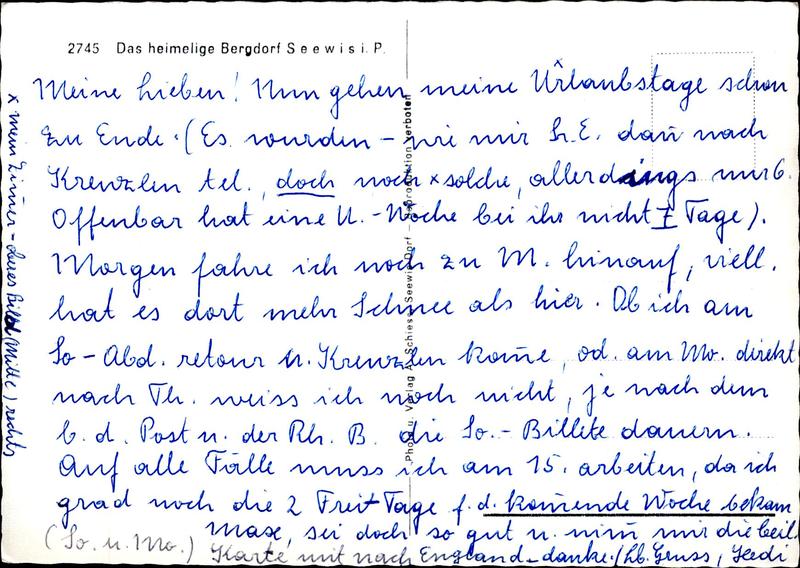 2745 Das heimelige Bergdorf Seewis i. P.
Meine Lieben! Nun gehen meine Urlaubstage schon
zu Ende. (Es wurden – wie mir Fr. E. dann nach
Kreuzlen tel., doch noch x solche, allerdings nur 6.
Offenbar hat eine U.-Woche bei ihr nicht 7 Tage).
Morgen fahre ich noch zu M. hinauf, viell.
hat es dort mehr Schnee als hier. Ob ich am
So-Abd. retour n. Kreuzlen kom̄e, od. am Mo. direkt
nach Th. weiss ich noch nicht, je nach dem
b. d. Post u. der Rh. B. die So.-Billete dauern.
Auf alle Fälle muss ich am 15. arbeiten, da ich
grad noch die 2 Frei-Tage f. d. kom̄ende Woche bekam
(So. u. Mo.)
Maxe, sei doch so gut u. nim̄ mir die beil.
Karte mit nach England – danke! Lb. Gruss, Hedi
x mein Zim̄er – (Mitte) rechts
Photo u. Verlag A. Schiess, Seewis-Dorf – Reproduktion verboten